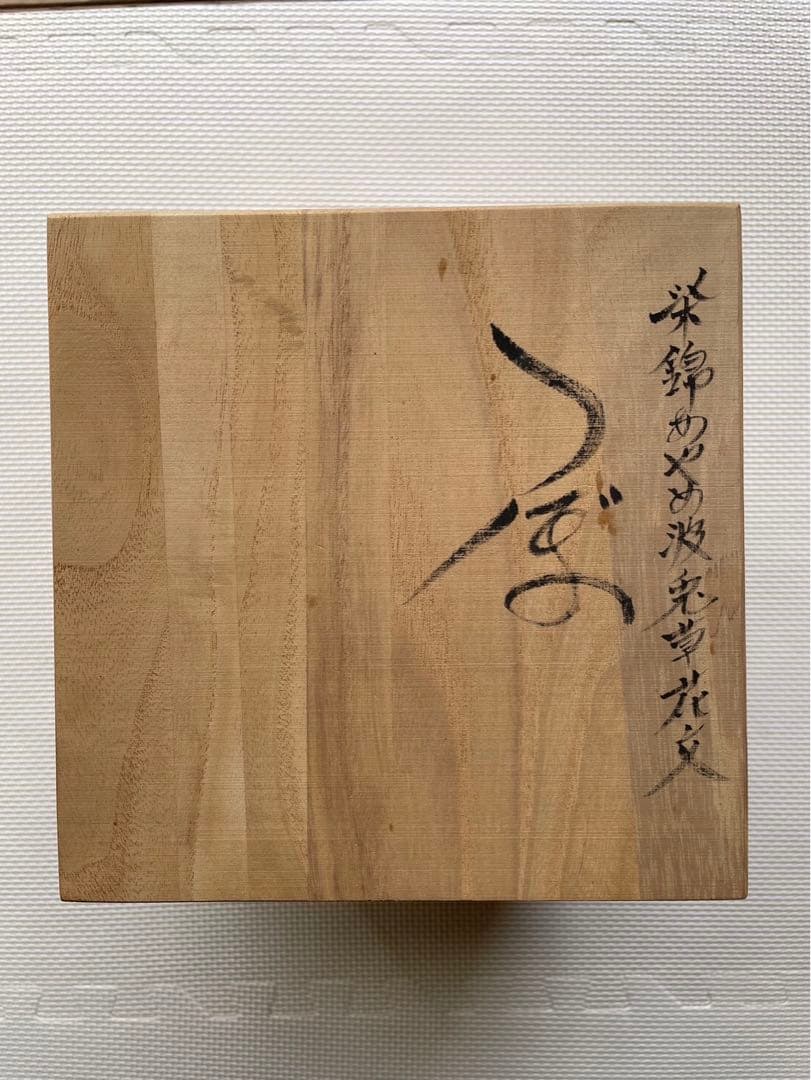 染錦あやめ波兎草花文
つぼ